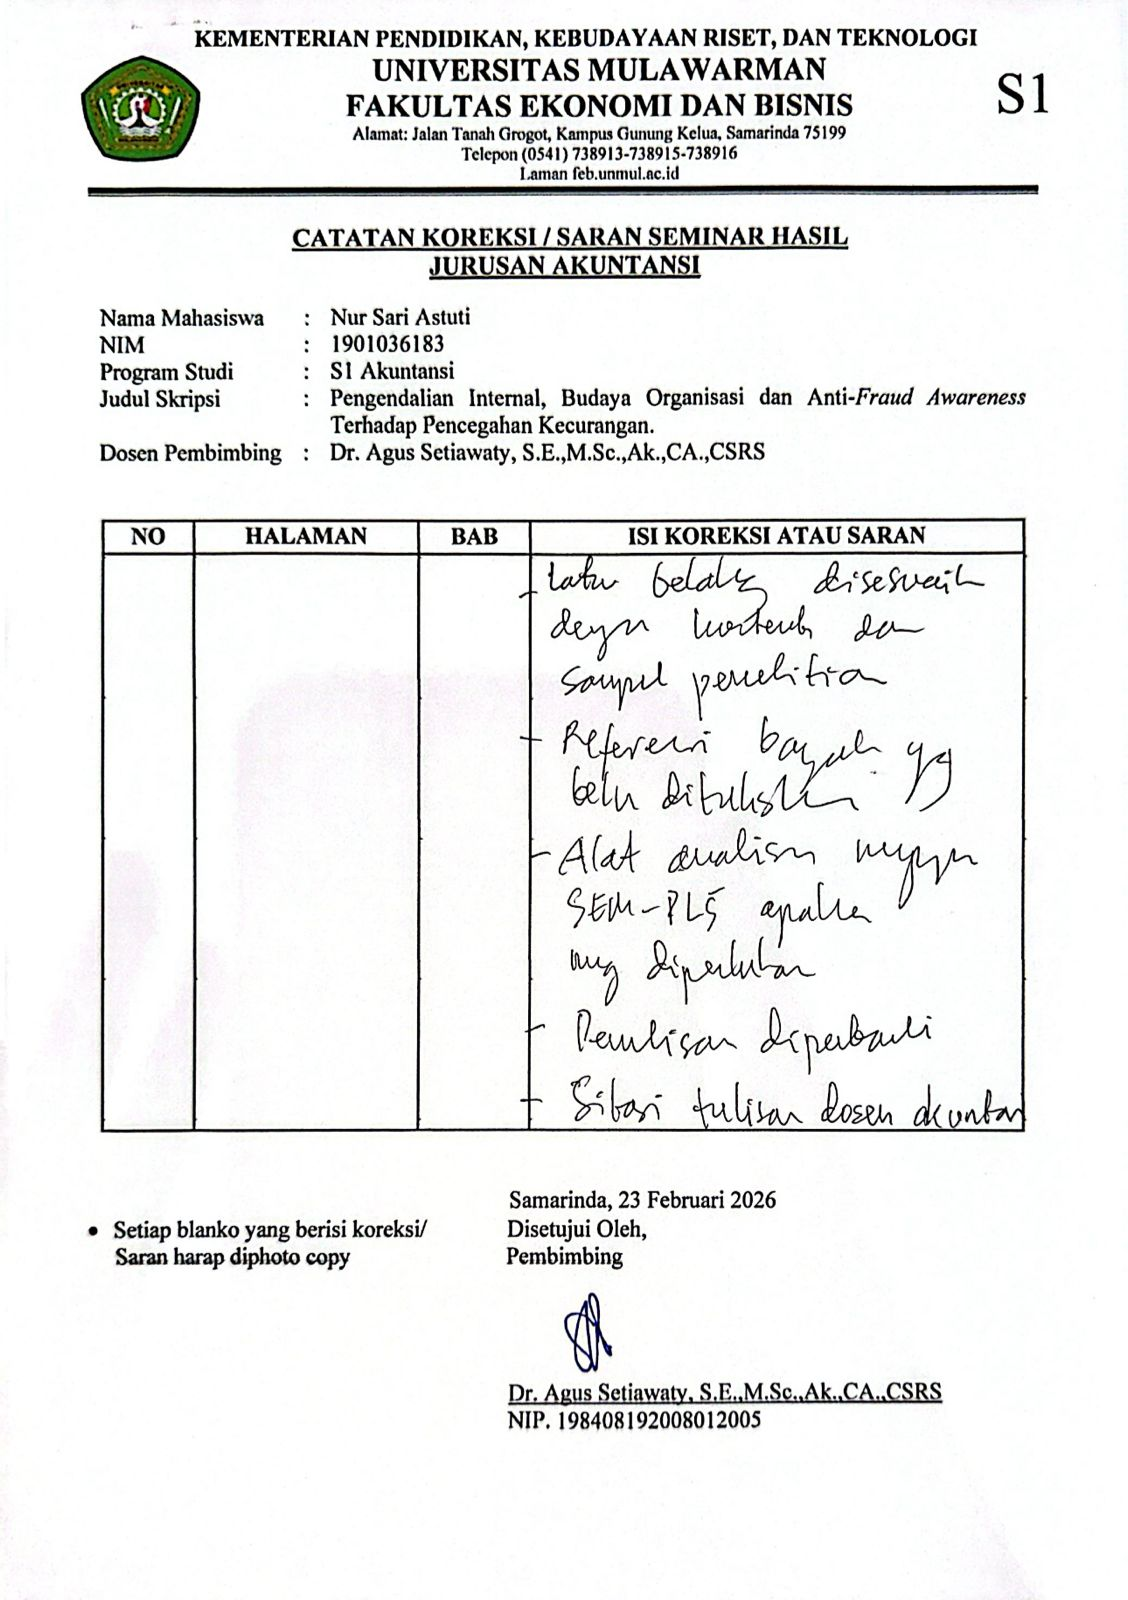 KEMENTERIAN PENDIDIKAN, KEBUDAYAAN RISET, DAN TEKNOLOGI
UNIVERSITAS MULAWARMAN
FAKULTAS EKONOMI DAN BISNIS
S1
Alamat: Jalan Tanah Grogot, Kampus Gunung Kelua, Samarinda 75199
Telepon (0541) 738913-738915-738916
Laman feb.unmul.ac.id
CATATAN KOREKSI / SARAN SEMINAR HASIL
JURUSAN AKUNTANSI
Nama Mahasiswa : Nur Sari Astuti
NIM : 1901036183
Program Studi : S1 Akuntansi
Judul Skripsi : Pengendalian Internal, Budaya Organisasi dan Anti-Fraud Awareness
Terhadap Pencegahan Kecurangan.
Dosen Pembimbing : Dr. Agus Setiawaty, S.E.,M.Sc.,Ak.,CA.,CSRS
NO HALAMAN BAB ISI KOREKSI ATAU SARAN
- latar belakg disesuaik
dengn dan
sampel penelitian
- Referensi banyak yg
belum dituliskan
- Alat analisis
SEM-PLS apakah
diperlukan
- Penulisan diperbaiki
- Sitasi tulisan dosen akuntan
Samarinda, 23 Februari 2026
• Setiap blanko yang berisi koreksi/ Disetujui Oleh,
Saran harap diphoto copy Pembimbing
Dr. Agus Setiawaty, S.E.,M.Sc.,Ak.,CA.,CSRS
NIP. 198408192008012005